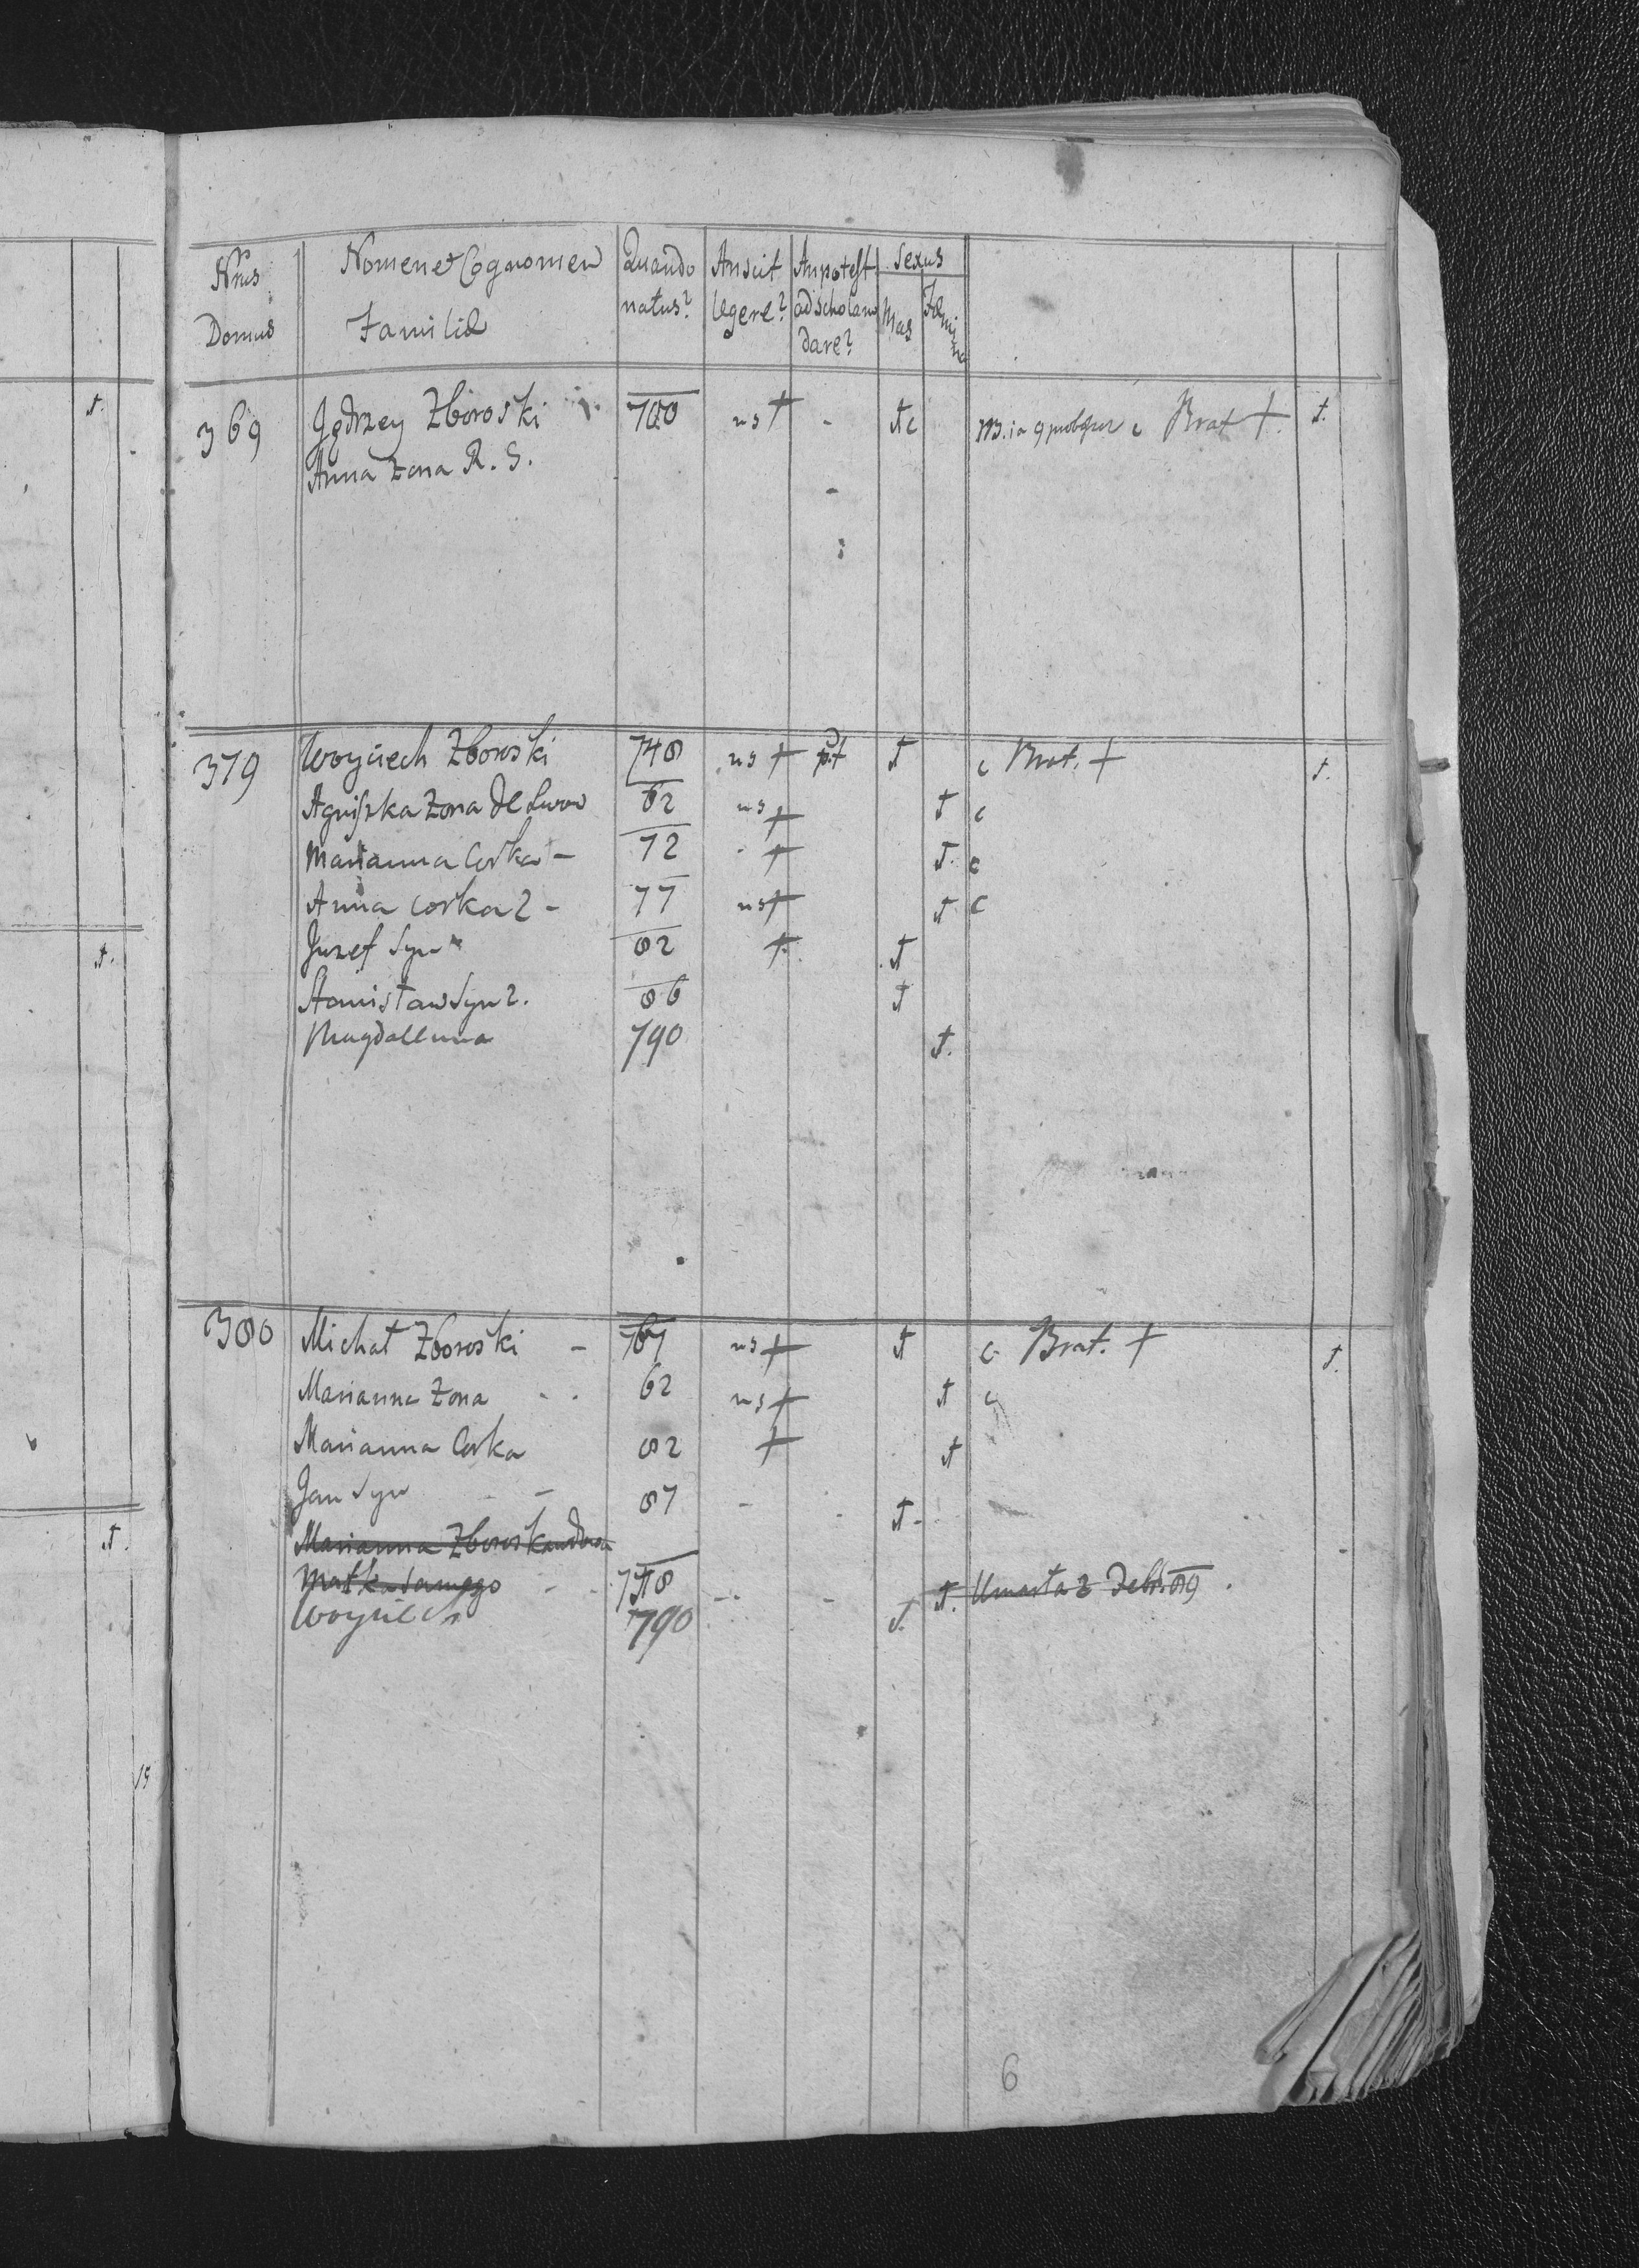 Nrus Domus
Nomen et Cognomen Familiæ
Quando natus?
An scit legere?
An potest ad scholam dare?
Sexus
Mas
Fæmina
369 Jędrzey Zboroski 1. 700 ns + - t c c Brat + t.
Anna Zona R. S. -
379 Woyciech Zboroski 748 ns + pt t c Brat. + t.
Agniszka Zona 62 ns + t c
Marianna Corka - 72 - + t. c
Anna corka 2 - 77 ns + t c
Juzef Syn 82 + t
Stanisław Syn 2. 86 t
Magdallena 790 t.
380 Michał Zboroski - 767 ns + t c Brat. + t.
Marianna Zona - . 62 ns + t c
Marianna Corka 82 + t
Jan Syn - 87 - t -
Marianna Zboroska wdowa
Matka samego - - 718 - - t. Umarła 2 Febr. 89.
Woyciech 790 t.
6